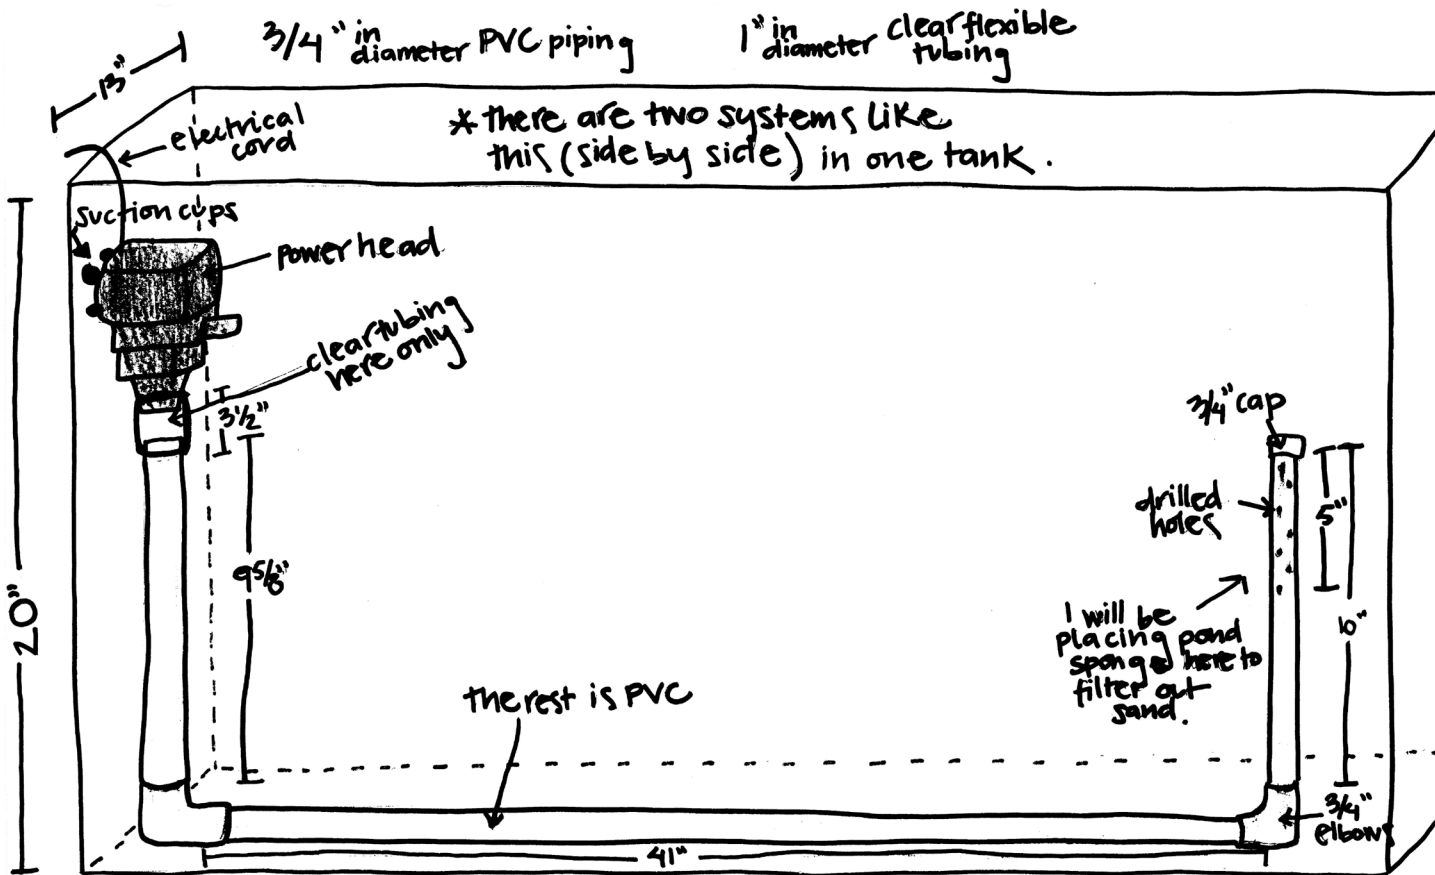 3/4" in diameter PVC piping
1" in diameter clear flexible tubing
13"
electrical
cord
* there are two systems like
this (side by side) in one tank.
suction cups
power head
clear tubing
here only
3 1/2"
3/4" cap
drilled
holes
5"
9 5/8"
10"
20"
I will be
placing pond
sponge here to
filter out
sand.
the rest is PVC
3/4"
elbows
41"